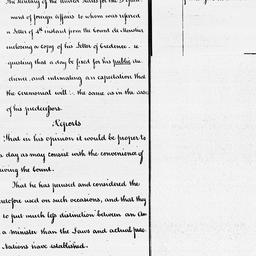 The Secretary of the United States for the Depart-
ment of foreign affairs to whom was referred
a Letter of 4th instant from the Count de Moustier
inclosing a copy of his Letter of Credence, re-
questing that a day be fixed for his public au-
dience, and intimating an expectation that
the ceremonial will be the same as in the case
of his predecessors.
Reports
That in his opinion it would be proper to
a day as may consist with the convenience of
the Count.
That he has perused and considered the
used on such occasions, and that they
to put much less distinction between an Am
a minister than the Laws and actual prac
Nations have established.